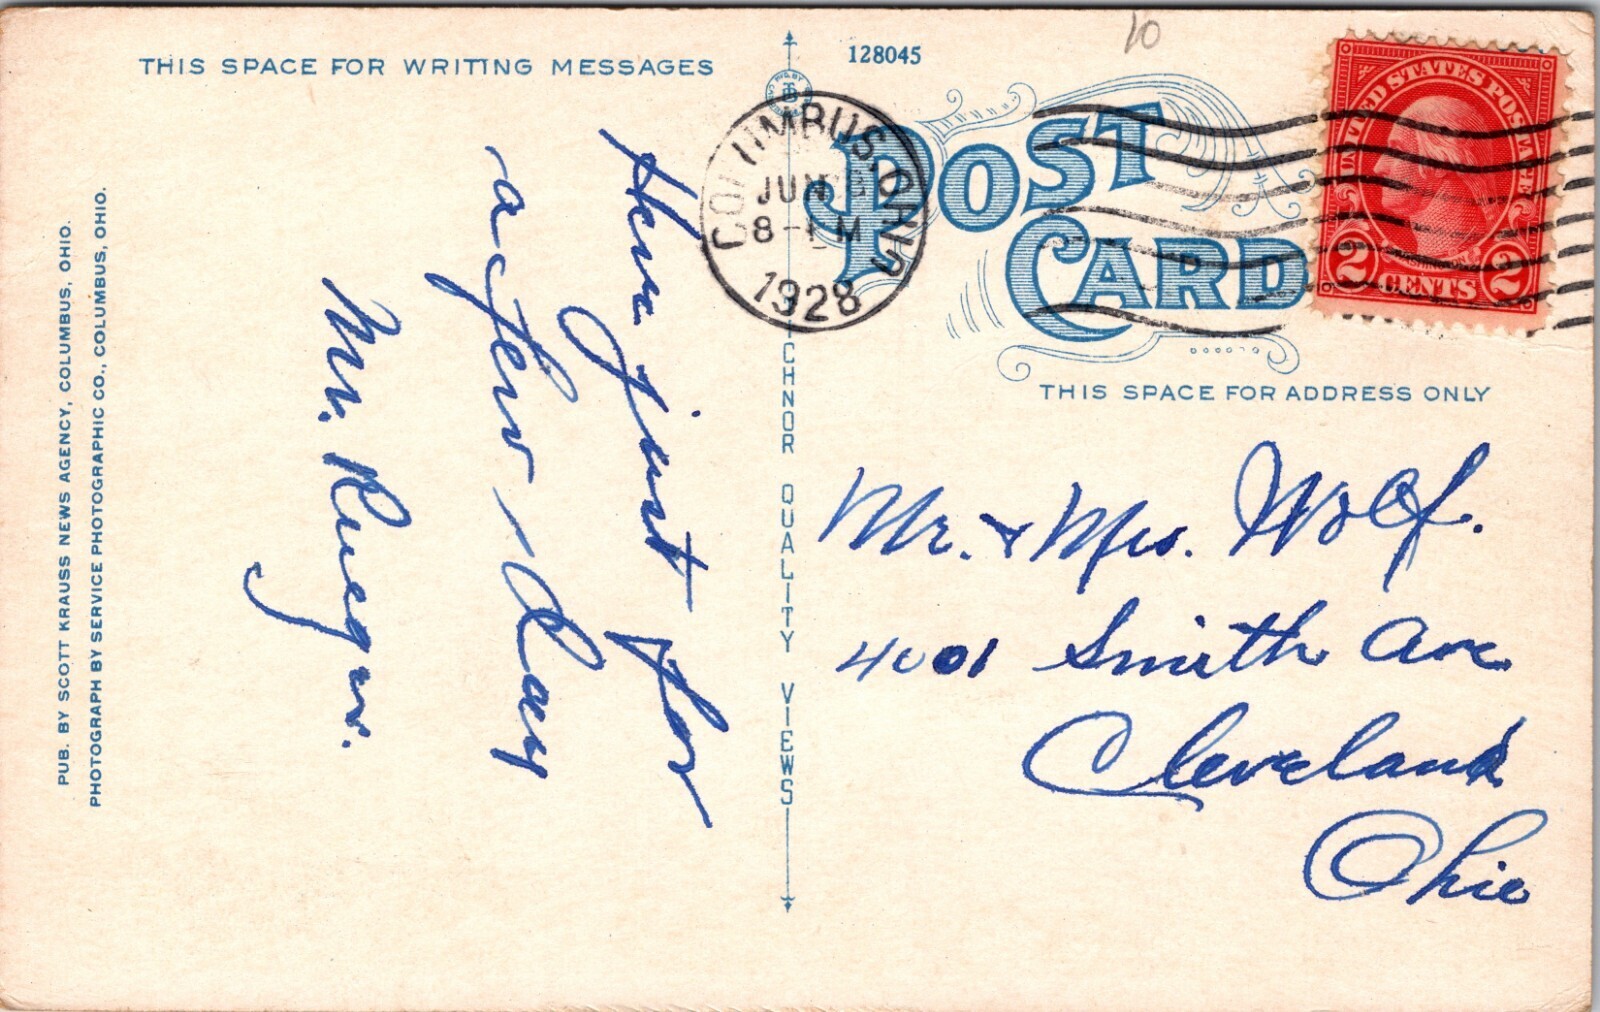 THIS SPACE FOR WRITING MESSAGES
128045
10
POST
CARD
COLUMBUS, OHIO
JUN
8 - PM
1928
UNITED STATES POSTAGE
WASHINGTON
2 CENTS 2
THIS SPACE FOR ADDRESS ONLY
Here just for
a few - Day
Mr. Rueger.
Mr. & Mrs. Wolf.
4001 Smith Ave
Cleveland
Ohio
CHNOR QUALITY VIEWS
PUB. BY SCOTT KRAUSS NEWS AGENCY, COLUMBUS, OHIO.
PHOTOGRAPH BY SERVICE PHOTOGRAPHIC CO., COLUMBUS, OHIO.